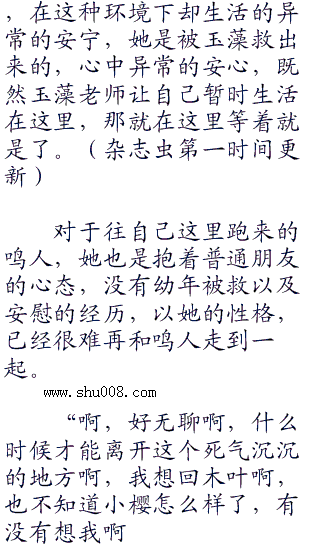 ，在这种环境下却生活的异
常的安宁，她是被玉藻救出
来的，心中异常的安心，既
然玉藻老师让自己暂时生活
在这里，那就在这里等着就
是了。（杂志虫第一时间更
新）
对于往自己这里跑来的
鸣人，她也是抱着普通朋友
的心态，没有幼年被救以及
安慰的经历，以她的性格，
已经很难再和鸣人走到一
起。
www.shu008.com
“啊，好无聊啊，什么
时候才能离开这个死气沉沉
的地方啊，我想回木叶啊，
也不知道小樱怎么样了，有
没有想我啊